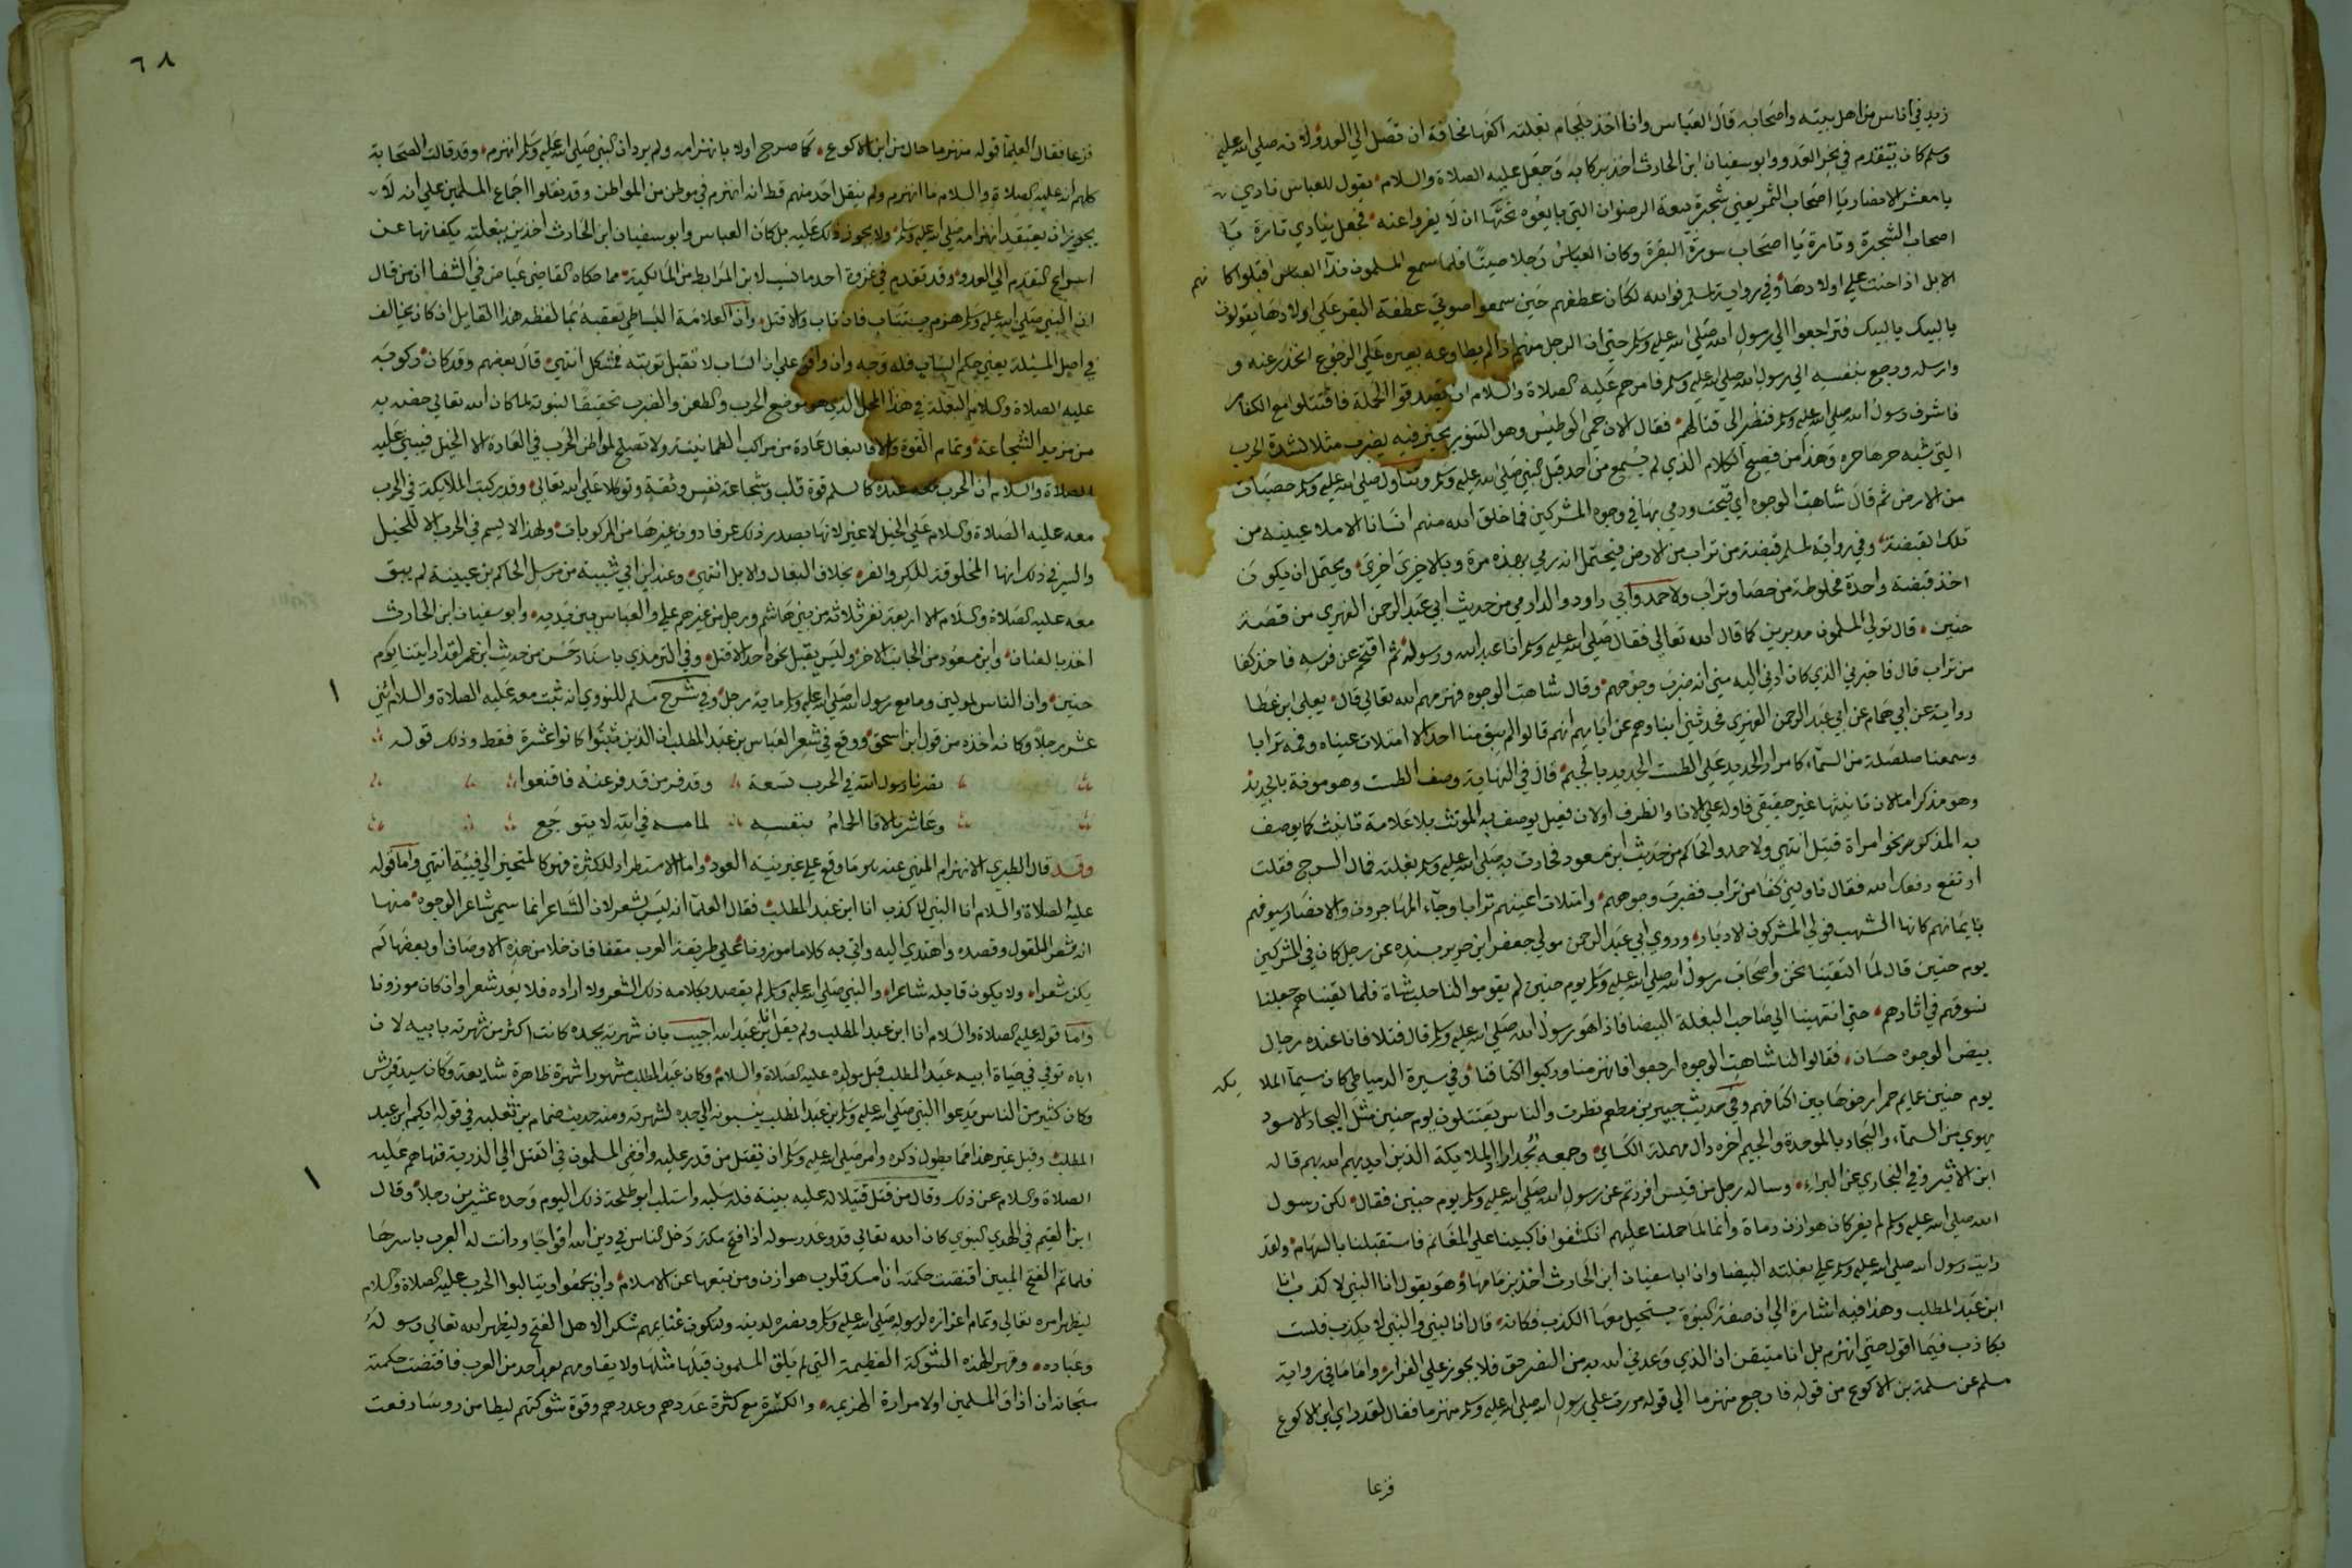 زيد في اناس من اهل بيته واصحابه قال العباس وانا اخذ بلجام بغلته اكفها مخافة ان تصل الي العدو لانه صلي الله عليه
وسلم كان يتقدم في نحر العدو وابو سفيان ابن الحارث اخذ بركابه وجعل عليه الصلاة والسلام يقول للعباس نادي
يا معشر الانصار يا اصحاب السمر يعني شجرة بيعة الرضوان التي بايعوه تحتها ان لا يفروا عنه فجعل ينادي تارة يا
اصحاب الشجرة وتارة يا اصحاب سورة البقرة وكان العباس رجلا صيتا فلما سمع المسلمون ندآ العباس اقبلوا كا نهم
الابل اذا حنت علي اولادها وفي رواية لمسلم فوالله لكان عطفهم حين سمعوا صوتي عطفة البقر علي اولادها يقولون
يا لبيك يا لبيك فتراجعوا الي رسول الله صلي الله عليه وسلم حتي ان الرجل منهم اذا لم يطاوعه بعيره علي الرجوع انحدر عنه و
وارسله ورجع بنفسه الي رسول الله صلي الله عليه وسلم فامرهم عليه الصلاة والسلام ان يصدقوا الحملة فاقتتلوا مع الكفار
فاشرف رسول الله صلي الله عليه وسلم فنظر الى قتالهم فقال الان حمي الوطيس وهو التنور يخبز فيه يضرب مثلا لشدة الحرب
التي شبه حرها حره وهذا من فصيح الكلام الذي لم يسمع من احد قبل النبي صلي الله عليه وسلم وتناول صلي الله عليه وسلم حصيات
من الارض ثم قال شاهت الوجوه اي قبحت ورمي بها في وجوه المشركين فما خلق الله منهم انسانا الا ملا عينيه من
تلك القبضة وفي رواية لمسلم قبضة من تراب من الارض فيحتمل انه رمي بهذه مرة وبالاخرى اخري ويحتمل ان يكون
اخذ قبضة واحدة مخلوطة من حصا وتراب ولاحمد وابي داود والدارمي من حديث ابي عبد الرحمن الفهري من قصة
حنين قال تولي المسلمون مدبرين كما قال الله تعالي فقال صلي الله عليه وسلم انا عبد الله ورسوله ثم اقتحم عن فرسه فاخذ كفا
من تراب قال فاخبرني الذي كان ادني اليه مني انه ضرب وجوههم وقال شاهت الوجوه فهزمهم الله تعالي قال يعلي ابن عطا
رواية عن ابي همام عن ابي عبد الرحمن الفهري فحدثني ابناوهم عن ابايهم انهم قالوا لم يبق منا احد الا امتلات عيناه وفمه ترابا
وسمعنا صلصلة من السمآء كامرار الحديد علي الطست الجديد بالجيم قال في النهاية وصف الطست وهو مونثة بالجديد
وهو مذكر اما لان تانيثها غير حقيقي فاوله علي الانا والظرف اولان فعيل يوصف به الموئث بلا علامة تانيث كما يوصف
به المذكر نحو امراة قتيل انتهي ولاحمد والحاكم من حديث ابن مسعود فحادت به صلي الله عليه وسلم بغلته فمال السرج فقلت
ارتفع رفعك الله فقال ناولني كفا من تراب فضرب وجوههم وامتلات اعينهم ترابا وجآء المهاجرون والانصار سيوفهم
بايمانهم كانها الشهب فولي المشركون الادبار وروي ابي عبد الرحمن مولي جعفر ابن جرير بسنده عن رجل كان في المشركين
يوم حنين قال لما التقينا نحن واصحاب رسول الله صلي الله عليه وسلم يوم حنين لم يقوموا لنا حلب شاة فلما لقيناهم جعلنا
نسوقهم في اثارهم حتي انتهينا الي صاحب البغلة البيضا فاذا هو رسول الله صلي الله عليه وسلم قال فتلافانا عنده رجال
بيض الوجوه حسان فقالوا لنا شاهت الوجوه ارجعوا فانهزمنا وركبوا اكتافنا وفي سيرة الدمياطي كان سيمآ الملا يكه
يوم حنين عمايم حمر ارخوها بين اكتافهم وفي حديث جبير بن مطعم نظرت والناس يقتتلون يوم حنين مثل البجاد الاسود
يهوي من السمآء والبجاد بالموحدة والجيم اخره دال مهملة الكساي وجمعه بجد اراد الملايكة الذين ايديهم الله بهم قاله
ابن الاثير وفي البخاري عن البراء وساله رجل من قيس افررتم عن رسول الله صلي الله عليه وسلم يوم حنين فقال لكن رسول
الله صلي الله عليه وسلم لم يفر كان هوازن رماة وانما لما حملنا عليهم انكشفوا فاكببنا علي المغانم فاستقبلنا بالسهام ولقد
رايت رسول الله صلي الله عليه وسلم علي بغلته البيضا وان ابا سفيان ابن الحارث اخذ بزمامها وهو يقول انا النبي لا كذب انا
ابن عبد المطلب وهذا فيه اشارة الي ان صفة النبوة يستحيل معها الكذب فكانه قال انا النبي والنبي لا يكذب فلست
بكاذب فيما اقول حتي انهزم بل انا متيقن ان الذي وعدني الله به من النصر حق فلا يجوز علي الفرار واما ما في رواية
مسلم عن سلمة بن الاكوع من قوله فارجع منهزما الي قوله مررت علي رسول الله صلي الله عليه وسلم منهزما فقال لقد راي ابن الاكوع
فزعا
٦٨
فزعا فقال العلما قوله منهزما حال من ابن الاكوع كما صرح اولا بانهزامه ولم يرد ان النبي صلي الله عليه وسلم انهزم وقد قالت الصحابة
كلهم انه عليه الصلاة والسلام ما انهزم ولم ينقل احد منهم قط انه انهزم في موطن من المواطن وقد نقلوا اجماع المسلمين علي انه لا
يجوز ان يعتقد انهزامه صلي الله عليه وسلم ولا يجوز ذلك عليه بل كان العباس وابو سفيان ابن الحارث اخذين ببغلته يكفانها عن
اسراع التقدم الي العدو وقد تقدم في غزوة احد ما نسب لابن المرابط من المالكية مما حكاه القاضي عياض في الشفا ان من قال
ان النبي صلي الله عليه وسلم هزم يستتاب فان تاب والا قتل وان العلامة البساطي تعقبه بما لفظه هذا القايل ان كان يخالف
في اصل المسئلة يعني حكم الساب فله وجه وان وافق علي ان الساب لا تقبل توبته فمشكل انتهي قال بعضهم وقد كان ركوبه
عليه الصلاة والسلام البغلة في هذا المحل الذي هو موضع الحرب والطعن والضرب تحقيقا لنبوته لما كان الله تعالي خصه به
من مزيد الشجاعة وتمام القوة والا فالبغال عادة من مراكب الطمانينة ولا تصلح لمواطن الحرب في العادة الا الخيل فبين عليه
الصلاة والسلام ان الحرب عنده كالسلم قوة قلب وشجاعة نفس وثقة وتوكلا علي الله تعالي وقد ركبت الملايكة في الحرب
معه عليه الصلاة والسلام علي الخيل لا غير لانها بصدد ذلك عرفا دون غيرها من المركوبات ولهذا لا يسهم في الحرب الا للخيل
والسر في ذلك انها المخلوقة للكر والفر بخلاف البغال والابل انتهي وعند ابن ابي شيبة من مرسل الحاكم بن عيينة لم يبق
معه عليه الصلاة والسلام الا اربعة نفر ثلاثة من بني هاشم ورجل من غيرهم علي والعباس بين يديه وابو سفيان ابن الحارث
اخذ بالعنان وابن مسعود من الجانب الاخر وليس يقبل نحوه احد الا قتل وفي الترمذي باسناد حسن من حديث ابن عمر لقد رايتنا يوم
حنين وان الناس لمولين وما مع رسول الله صلي الله عليه وسلم ماية رجل وفي شرح مسلم للنووي انه ثبت معه عليه الصلاة والسلام اثني
عشر رجلا وكانه اخذه من قول ابن اسحق ووقع في شعر العباس بن عبد المطلب ان الذين ثبتوا كانوا عشرة فقط وذلك قوله
نصرنا رسول الله في الحرب تسعة وقد فر من قد فر عنه فاقنعوا
وعاشرنا لاقا الحمام بنفسه لما مسه في الله لا يتوجع
وقد قال الطبري الانهزام المنهي عنه هو ما وقع علي غير نية العود واما الاستطراد للكثرة فهو كالمتحيز الي فيئة انتهي واما قوله
عليه الصلاة والسلام انا النبي لا كذب انا ابن عبد المطلب فقال العلمآ انه ليس بشعر لان الشاعر انما سمي شاعرا لوجوه منها
انه شعر القول وقصده واهتدي اليه واتي به كلاما موزونا علي طريقة العرب مقفا فان خلا من هذه الاوصاف او بعضها لم
يكن شعرا ولا يكون قايله شاعرا والنبي صلي الله عليه وسلم لم يقصد بكلامه ذلك الشعر ولا اراده فلا يعد شعرا وان كان موزونا
واما قوله عليه الصلاة والسلام انا ابن عبد المطلب ولم يقل انا ابن عبد الله اجيب بان شهرته بجده كانت اكثر من شهرته بابيه لان
اباه توفي في حياة ابيه عبد المطلب قبل مولده عليه الصلاة والسلام وكان عبد المطلب مشهورا شهرة ظاهرة شايعة وكان سيد قريش
وكان كثير من الناس يدعوا النبي صلي الله عليه وسلم بن عبد المطلب ينسبونه الي جده لشهرته ومنه حديث ضمام بن ثعلبه في قوله ايكم ابن عبد
المطلب وقيل غير هذا مما يطول ذكره وامر صلي الله عليه وسلم ان يقتل من قدر عليه وافضي المسلمون في القتل الي الذرية فنهاهم عليه
الصلاة والسلام عن ذلك وقال من قتل قتيلا له عليه بينة فله سلبه واستلب ابو طلحة ذلك اليوم وحده عشرين رجلا وقال
ابن القيم في الهدي النبوي كان الله تعالي قد وعد رسوله اذا فتح مكة دخل الناس في دين الله افواجا ودانت له العرب باسرها
فلما تم الفتح المبين اقتضت حكمته ان امسك قلوب هوازن ومن تبعها عن الاسلام وان يجمعوا ويتالبوا لحرب عليه الصلاة والسلام
ليظهر امره تعالي وتمام اعزازه لرسوله صلي الله عليه وسلم ونصره لدينه ولتكون غنايمهم شكرا لاهل الفتح وليظهر الله تعالي رسوله
وعباده وقهره لهذه الشوكة العظيمة التي لم يلق المسلمون قبلها مثلها ولا يقاومهم بعد احد من العرب فاقتضت حكمته
سبحانه ان اذاق المسلمين اولا مرارة الهزيمه والكسرة مع كثرة عددهم وعددهم وقوة شوكتهم ليطامن روسا رفعت